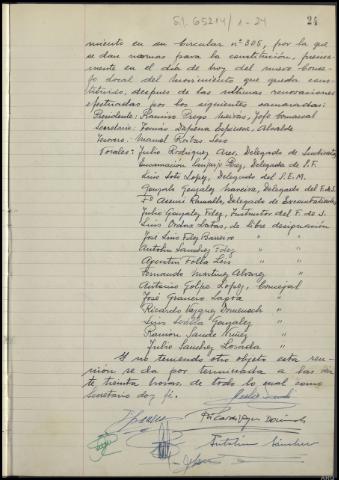 S.I. 65214/1-24
24
miento en su Circular nº 305, por la que
se dan normas para la constitución,
en el día de hoy del nuevo Conse-
jo Local del Movimiento que queda cons-
tituido, despues de las ultimas renovaciones
efectuadas por los siguientes camaradas:
Presidente: Ramiro Prego Meiras, Jefe Comarcal
Secretario: Tomás Dapena Espinosa, Alcalde
Tesorero: Manuel
Vocales: Julio Rodriguez Ares, Delegado de Sindicatos
Encarnación Perez, Delegada de S.F.
Luis Soto Lopez, Delegado del S.E.M.
Gonzalo Gonzalez, Delegado del F. de J.
Fº Asensi Ramallo, Delegado de
Julio Gonzalez Fdez, Instructor del F. de J.
Luis Ordax, de libre designación
José Luis Fdez Barreiro " "
Antolin Sanchez Fdez " "
Agustin Folla Leis " "
Fernando Martinez Alvarez "
Antonio Golpe Lopez, Concejal
José Granero Lagoa "
Ricardo Vazquez "
Luis Gonzalez "
Ramon Sande "
Julio Sanchez Losada "
Y no teniendo otro objeto esta reu-
nión se da por terminada a las
te treinta horas, de todo lo cual como
Secretario doy fé.
Antolin Sánchez